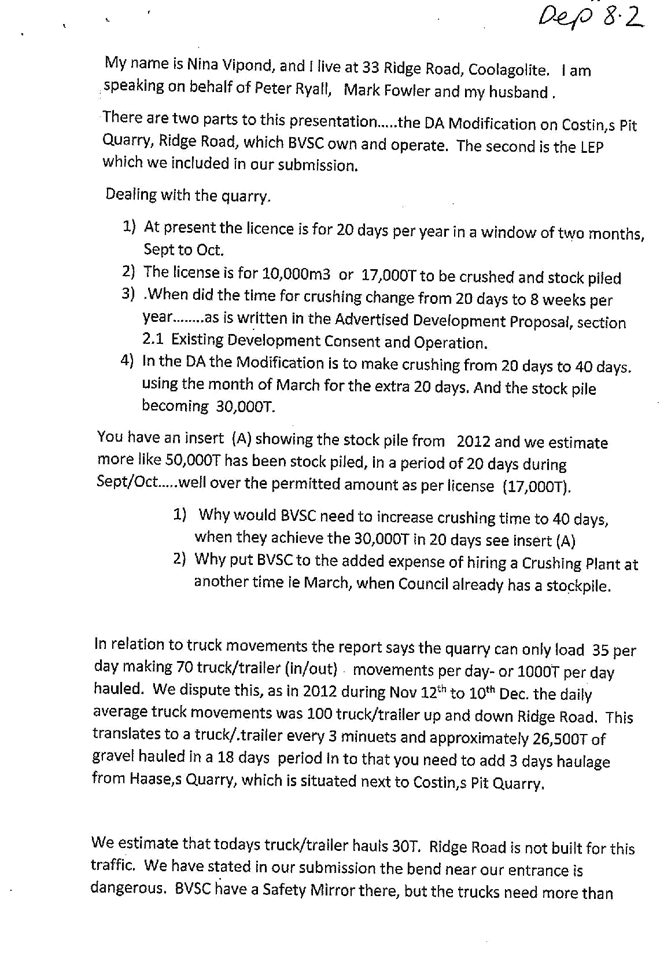 Dep 8.2
My name is Nina Vipond, and I live at 33 Ridge Road, Coolagolite.  I am
speaking on behalf of Peter Ryall,  Mark Fowler and my husband .
There are two parts to this presentation.....the DA Modification on Costin,s Pit
Quarry, Ridge Road, which BVSC own and operate.  The second is the LEP
which we included in our submission.
Dealing with the quarry.
1) At present the licence is for 20 days per year in a window of two months,
Sept to Oct.
2) The license is for 10,000m3  or  17,000T to be crushed and stock piled
3) .When did the time for crushing change from 20 days to 8 weeks per
year........as is written in the Advertised Development Proposal, section
2.1  Existing Development Consent and Operation.
4) In the DA the Modification is to make crushing from 20 days to 40 days.
using the month of March for the extra 20 days. And the stock pile
becoming  30,000T.
You have an insert  (A) showing the stock pile from  2012 and we estimate
more like 50,000T has been stock piled, in a period of 20 days during
Sept/Oct.....well over the permitted amount as per license  (17,000T).
1)  Why would BVSC need to increase crushing time to 40 days,
when they achieve the 30,000T in 20 days see insert (A)
2)  Why put BVSC to the added expense of hiring a Crushing Plant at
another time ie March, when Council already has a stockpile.
In relation to truck movements the report says the quarry can only load  35 per
day making 70 truck/trailer (in/out)  movements per day- or 1000T per day
hauled.  We dispute this, as in 2012 during Nov 12th to 10th Dec. the daily
average truck movements was 100 truck/trailer up and down Ridge Road.  This
translates to a truck/.trailer every 3 minuets and approximately 26,500T of
gravel hauled in a 18 days  period In to that you need to add 3 days haulage
from Haase,s Quarry, which is situated next to Costin,s Pit Quarry.
We estimate that todays truck/trailer hauls 30T.  Ridge Road is not built for this
traffic.  We have stated in our submission the bend near our entrance is
dangerous.  BVSC have a Safety Mirror there, but the trucks need more than